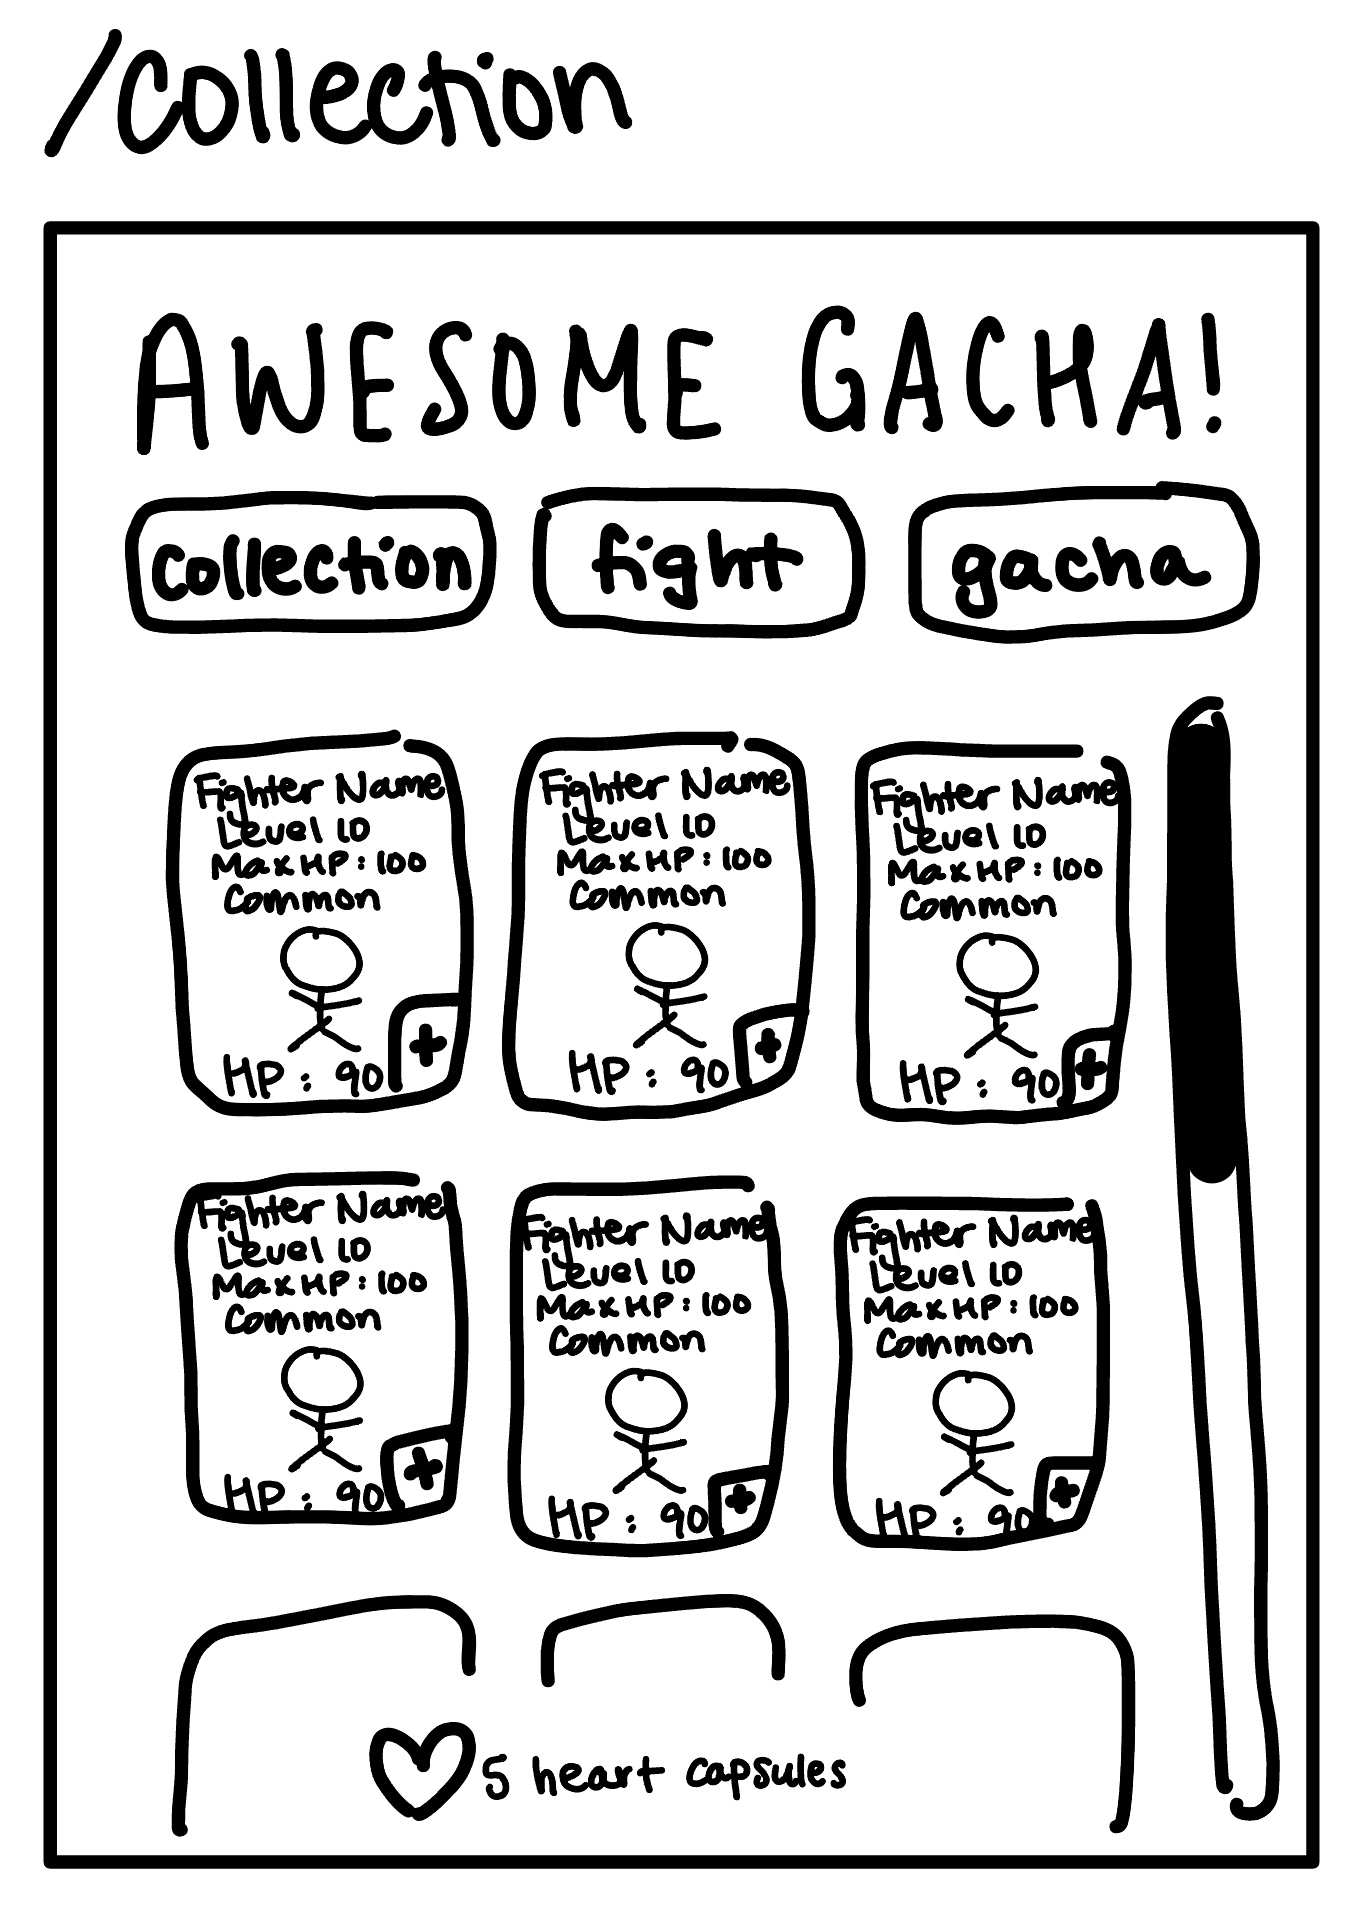 /collection
AWESOME GACHA!
collection fight gacha
Fighter Name
Level 10
Max HP: 100
Common
HP: 90 +
Fighter Name
Level 10
Max HP: 100
Common
HP: 90 +
Fighter Name
Level 10
Max HP: 100
Common
HP: 90 +
Fighter Name
Level 10
Max HP: 100
Common
HP: 90 +
Fighter Name
Level 10
Max HP: 100
Common
HP: 90 +
Fighter Name
Level 10
Max HP: 100
Common
HP: 90 +
5 heart capsules